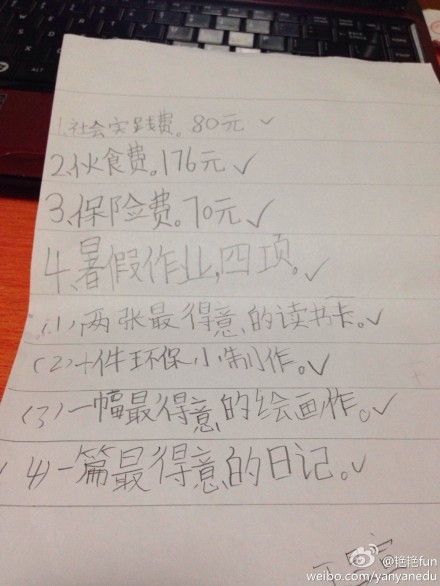 1.社会实践费。80元 ✓
2.伙食费。176元 ✓
3.保险费。70元 ✓
4.暑假作业,四项。✓
(1)两张最得意的读书卡。✓
(2)一件环保小制作。✓
(3)一幅最得意的绘画作。✓
(4)一篇最得意的日记。✓
@艳艳fun
weibo.com/yanyanedu